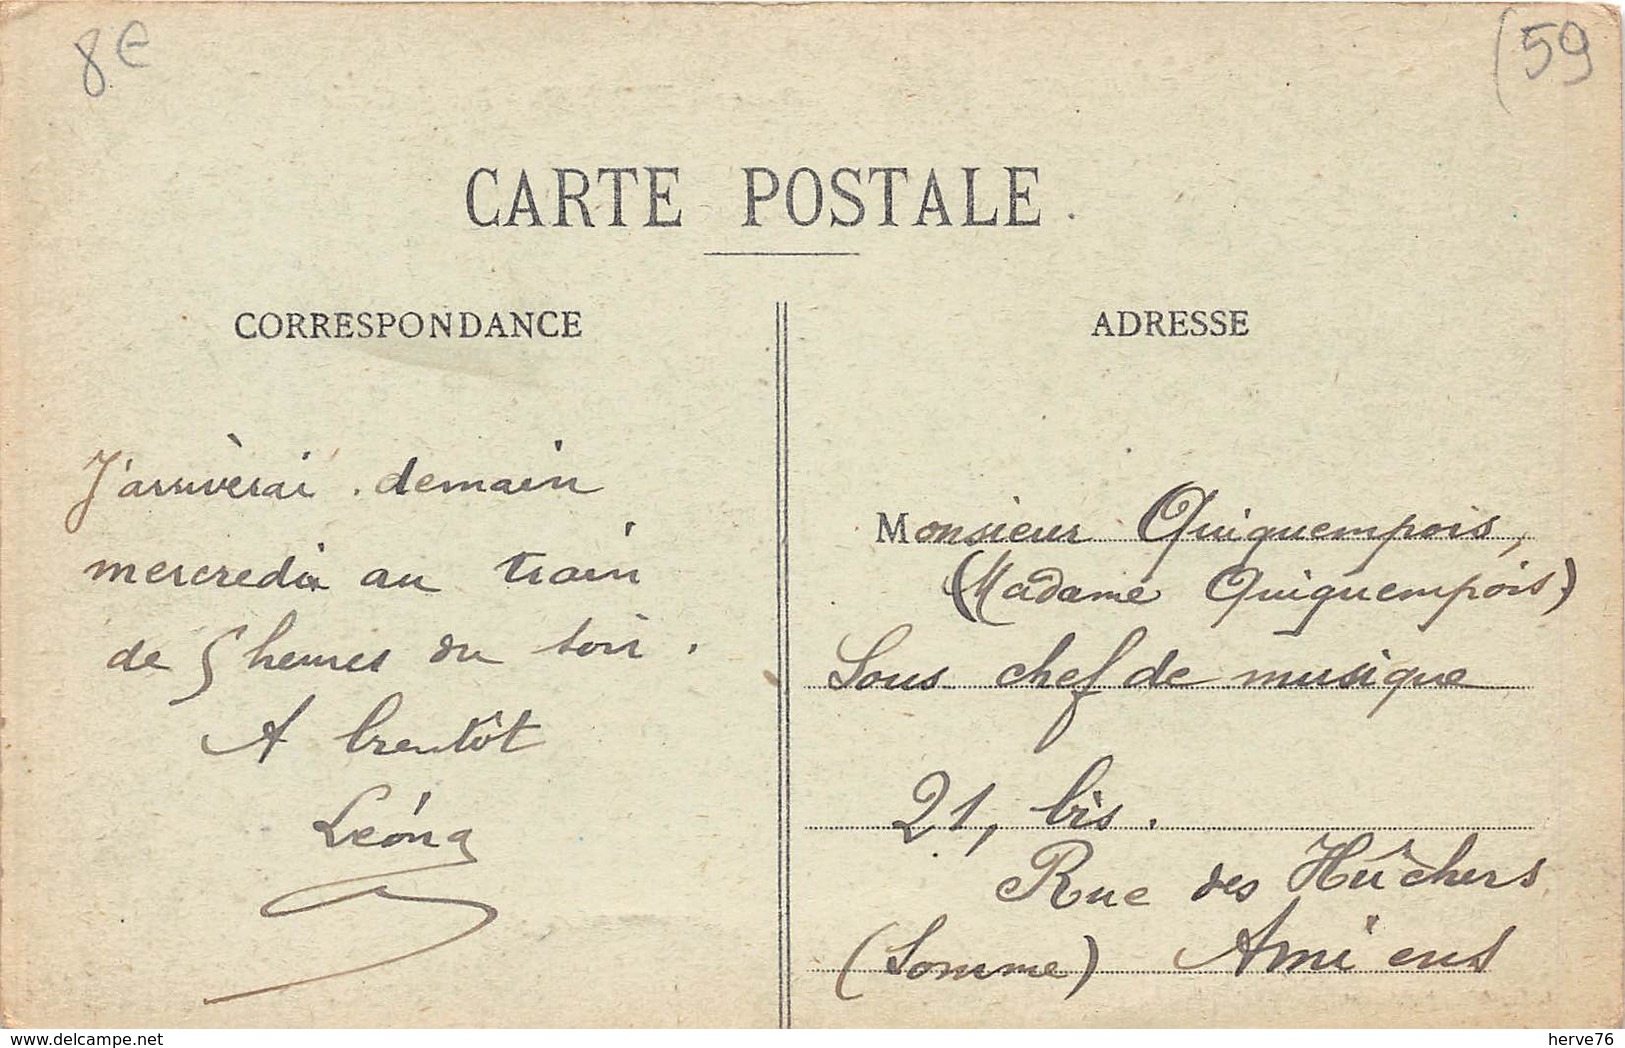 8e
(59
CARTE POSTALE
CORRESPONDANCE
J'arrivèrai demain
mercredi au train
de 5 heures du soir.
A bientôt
Léona
ADRESSE
Monsieur Quiquempois,
(Madame Quiquempois)
Sous chef de musique
21, bis.
Rue des Hûchers
(Somme) Amiens
delcampe.net
herve76